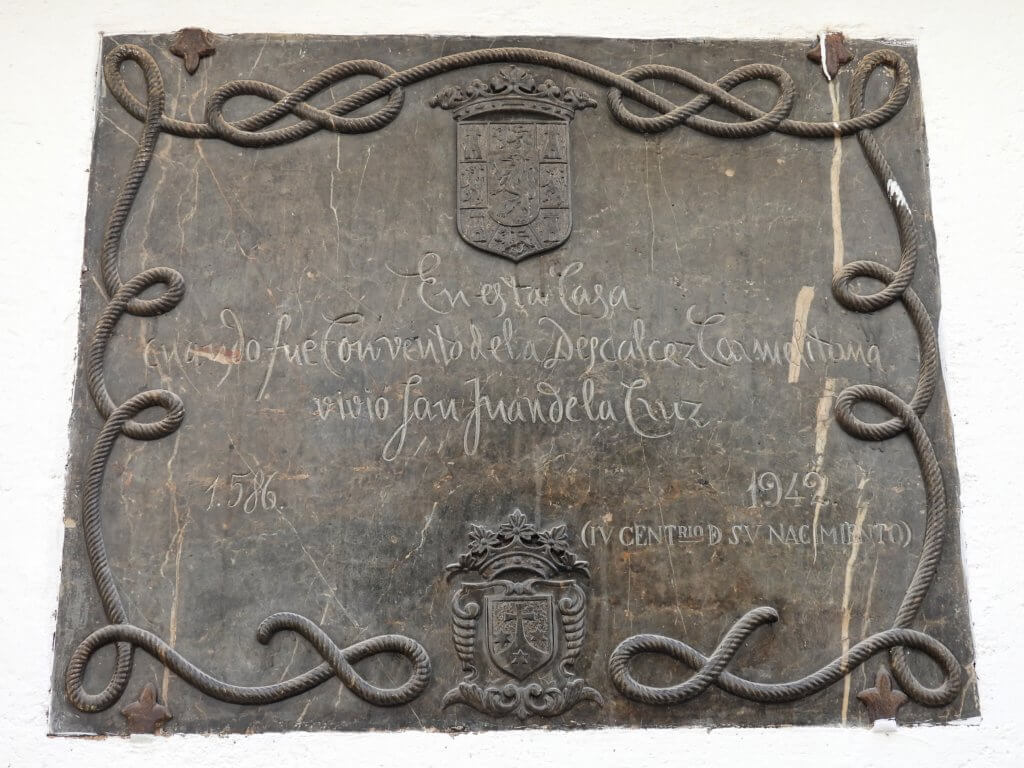 En esta Casa
cuando fué Convento de la Descalcez Carmelitana
vivio San Juan de la Cruz.
1.586. 1942.
(IV CENTRIO D SV NACIMIENTO)